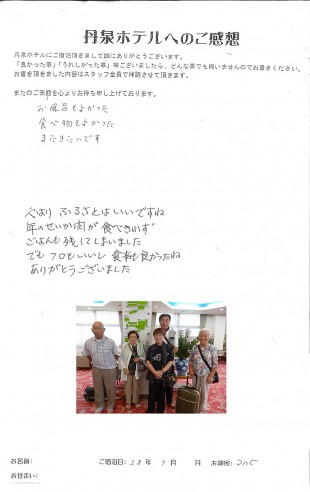 丹泉ホテルへのご感想
丹泉ホテルにご宿泊頂きまして誠にありがとうございます。
「良かった事」「うれしかった事」等ございましたら、どんな事でも構いませんのでお書きください。
お書き頂きました内容はスタッフ全員で拝読させて頂きます。
またのご来館を心よりお待ち申し上げております。
お風呂もよかった
食べ物もよかった
またきたいです
やはり ふるさとはいいですね
年のせいか肉が食べきれず
ごはんも残してしまいました
でも フロもいいし 食事も良かったね
ありがとうございました
お名前:
ご宿泊日: 28 年 9 月 日 お部屋:
お住まい: